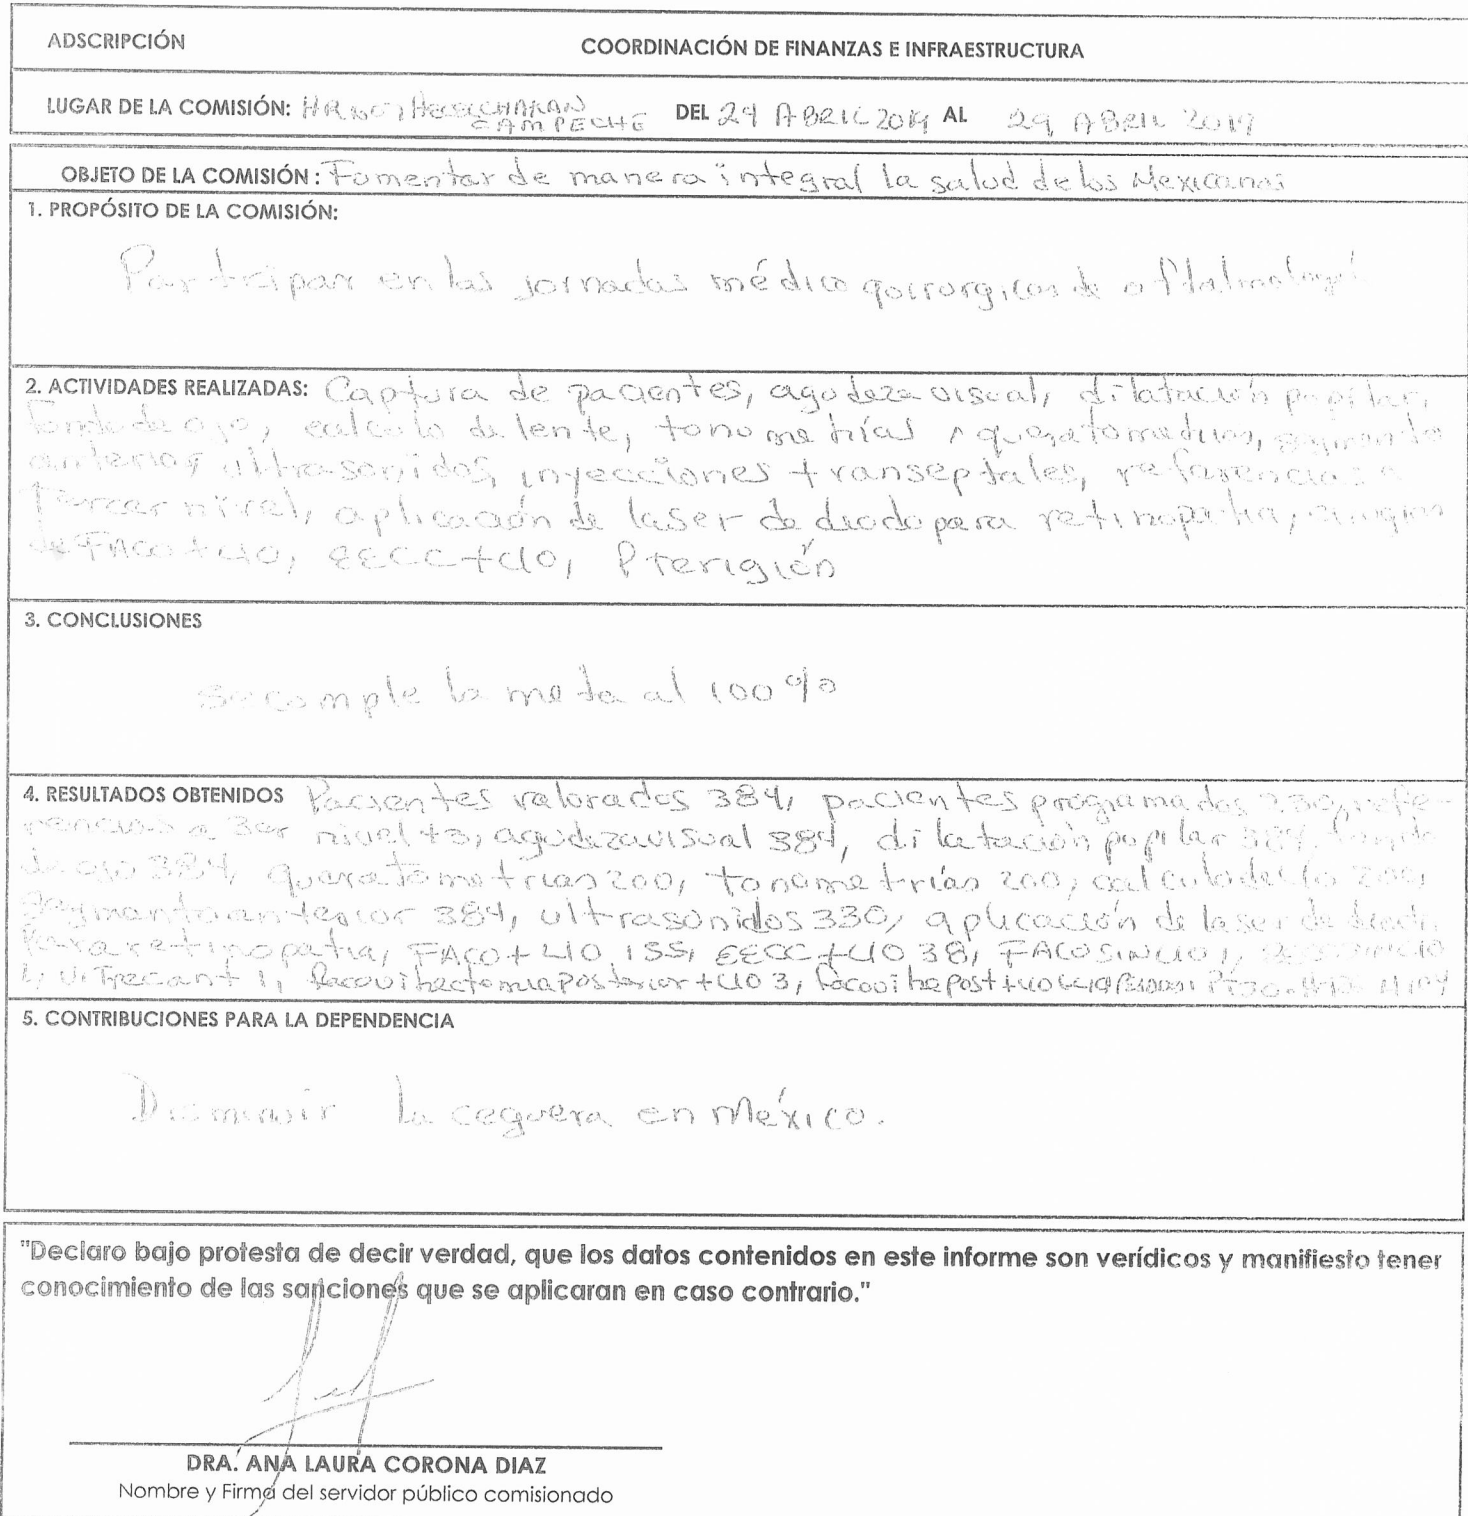 ADSCRIPCIÓN COORDINACIÓN DE FINANZAS E INFRAESTRUCTURA
LUGAR DE LA COMISIÓN: HECELCHAKAN DEL 24 ABRIL 2019 AL 29 ABRIL 2019
CAMPECHE
OBJETO DE LA COMISIÓN : Fomentar de manera integral la salud de los Mexicanos
1. PROPÓSITO DE LA COMISIÓN:
Participar en las jornadas médico quirurgicas de oftalmología
2. ACTIVIDADES REALIZADAS: Captura de pacientes, agudeza visual, dilatación pupilar,
fondo de ojo, calculo de lente, tonometrías queratometrias, segmento
anterior, ultrasonidos, inyecciones transeptales, referencias a
tercer nivel, aplicación de laser de diodo para retinopatia, cirugias
de FACO + LIO, EECC + LIO, Pterigión
3. CONCLUSIONES
se cumple la meta al 100%
4. RESULTADOS OBTENIDOS Pacientes valorados 384, pacientes programados refe-
rencias a 3er nivel agudeza visual 384, dilatación pupilar 384, fondo
de ojo 384, queratometrias 200, tonometrías 200, calculo de 200,
segmento anterior 384, ultrasonidos 330, aplicación de laser de diodo
para retinopatia, FACO + LIO 155, EECC + LIO 38, FACO SIN LIO 1,
1, 1, posterior + LIO 3, post + LIO
5. CONTRIBUCIONES PARA LA DEPENDENCIA
Disminuir la ceguera en México.
"Declaro bajo protesta de decir verdad, que los datos contenidos en este informe son verídicos y manifiesto tener
conocimiento de las sanciones que se aplicaran en caso contrario."
DRA. ANA LAURA CORONA DIAZ
Nombre y Firma del servidor público comisionado